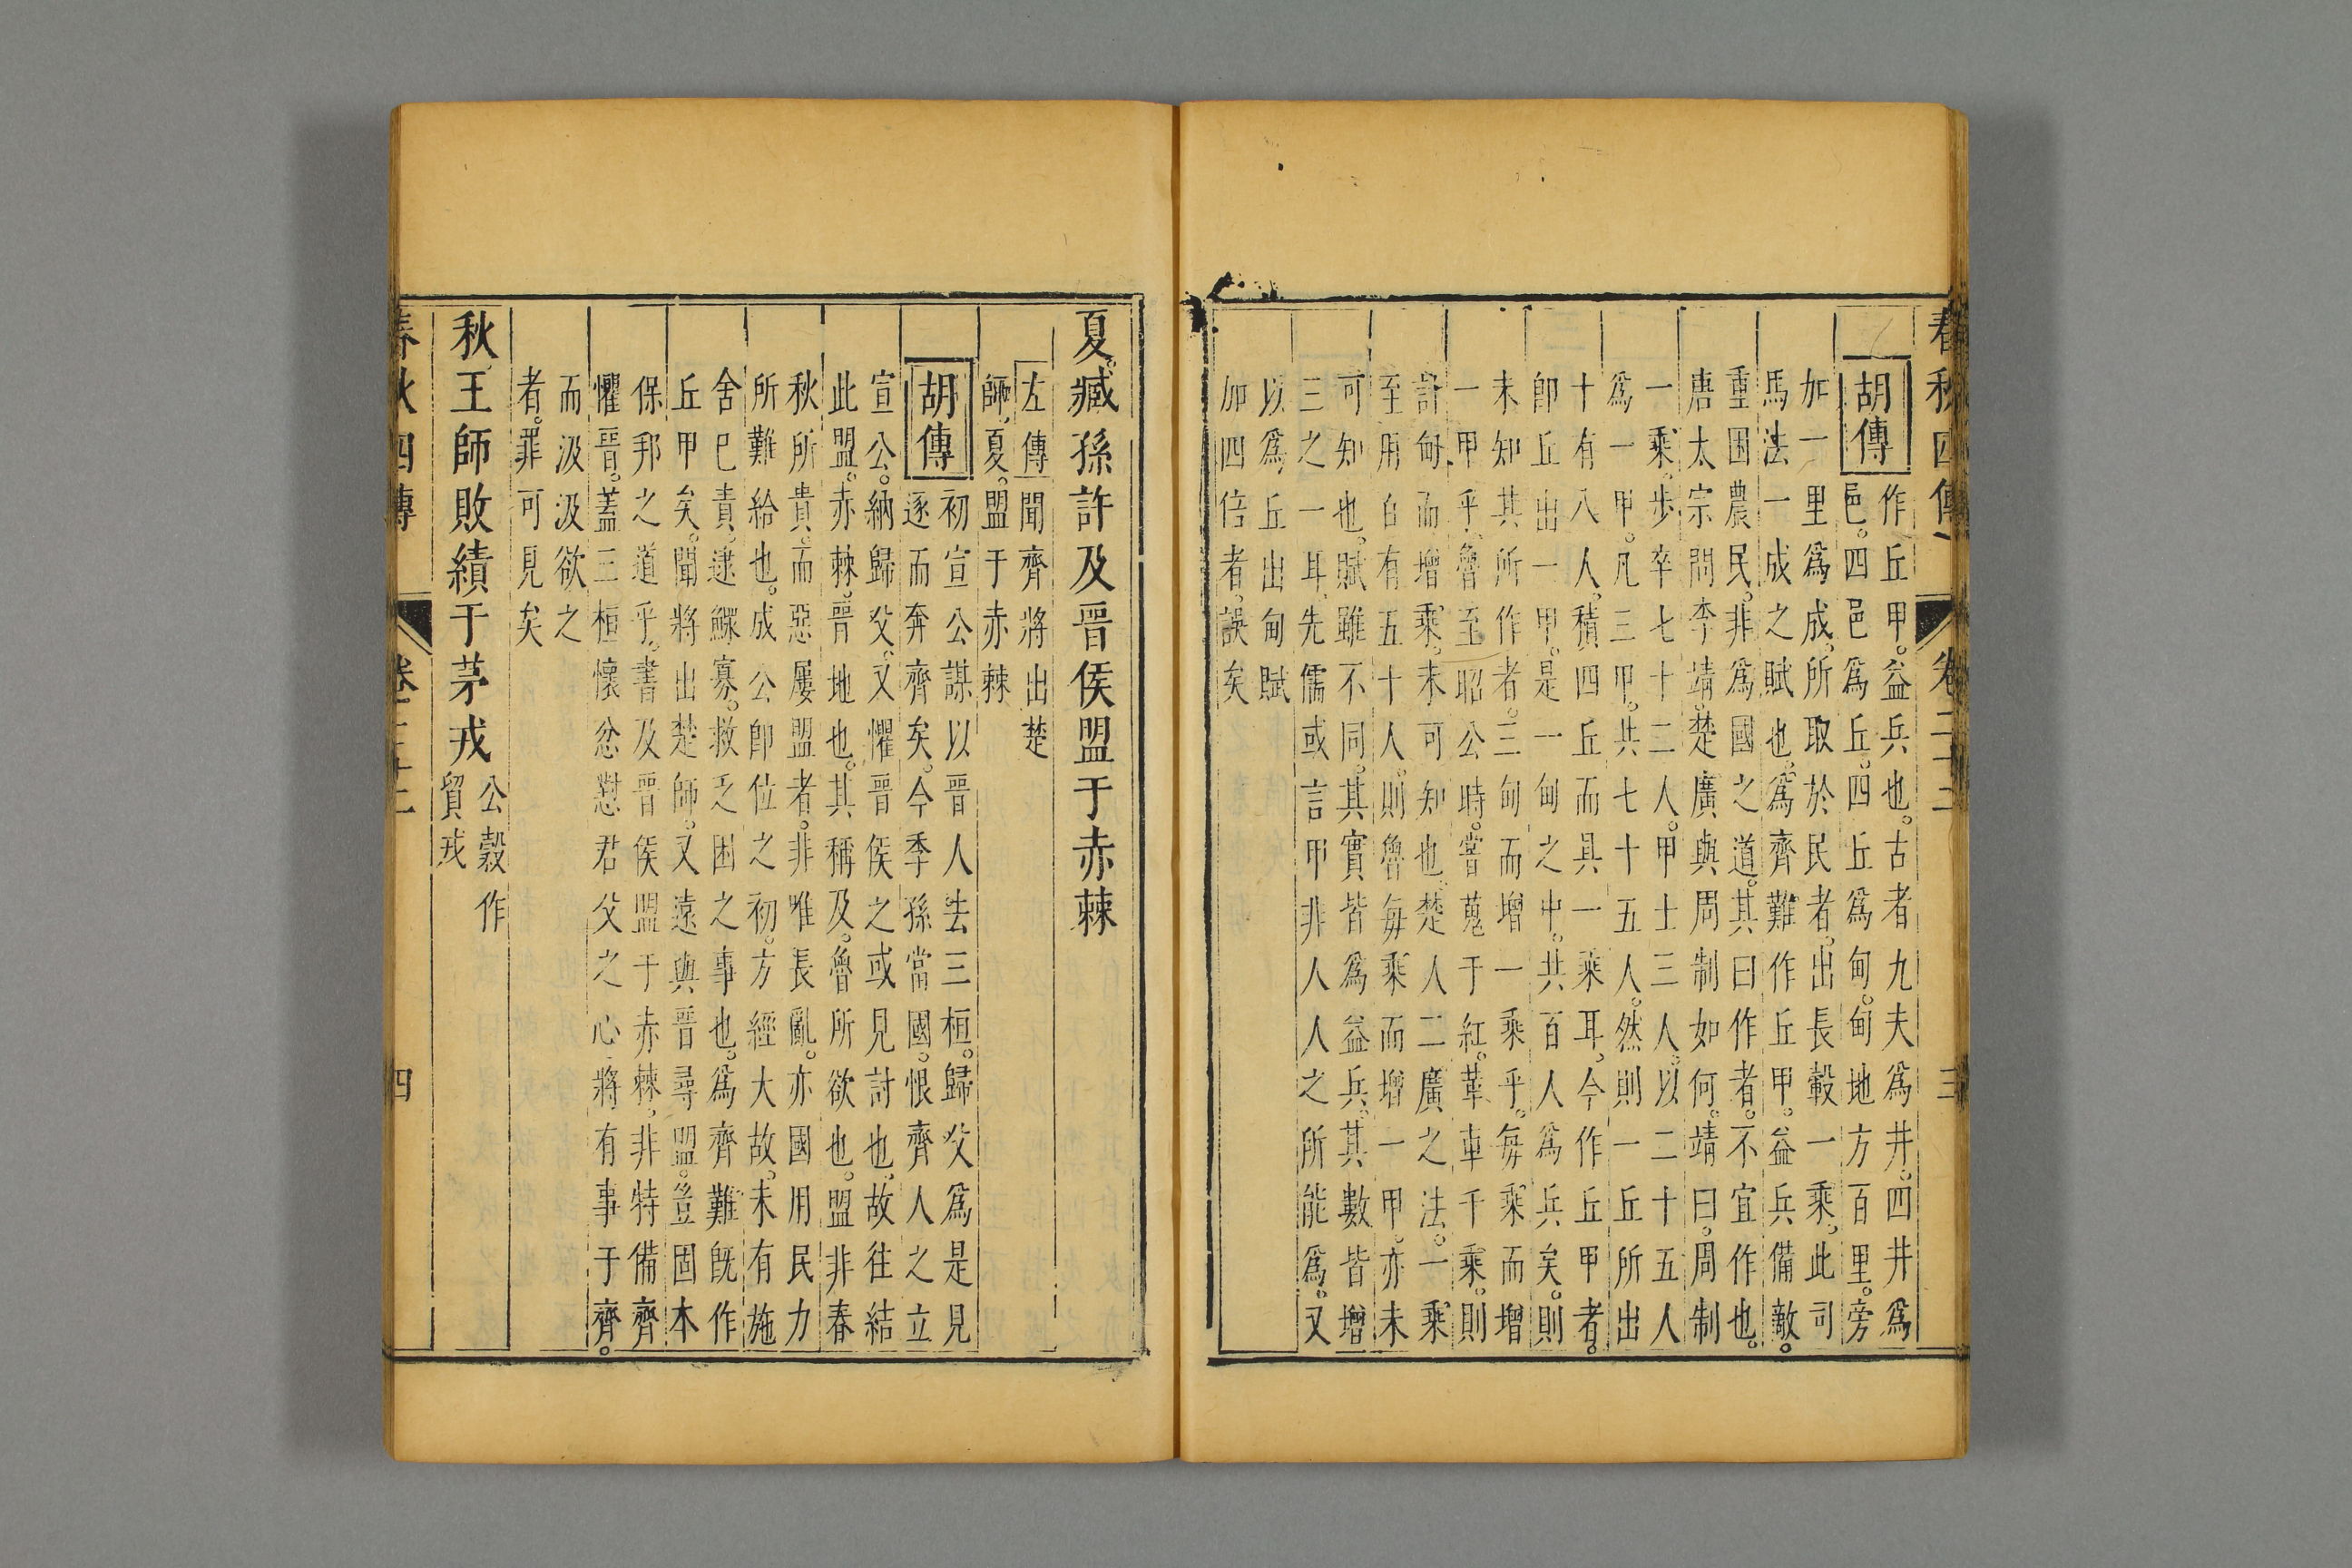 春秋四傳
卷二十三
三
胡傳
作丘甲。益兵也。古者九夫爲井。四井爲
邑。四邑爲丘。四丘爲甸。甸地方百里。旁
加一里爲成。所取於民者。出長轂一乘。此司
馬法一成之賦也。爲齊難作丘甲。益兵備敵。
重困農民。非爲國之道。其曰作者。不宜作也。
唐太宗問李靖。楚廣與周制如何。靖曰。周制
一乘。步卒七十二人。甲士三人。以二十五人
爲一甲。凡三甲。共七十五人。然則一丘所出
十有八人。積四丘而具一乘耳。今作丘甲者。
卽丘出一甲。是一甸之中。共百人爲兵矣。則
未知其所作者。三甸而增一乘乎。每乘而增
一甲乎。魯至昭公時。嘗蒐于紅。革車千乘。則
計甸而增乘。未可知也。楚人二廣之法。一乘
至用百有五十人。則魯每乘而增一甲。亦未
可知也。賦雖不同。其實皆爲益兵。其數皆增
三之一耳。先儒或言甲非人人之所能爲。又
以爲丘出甸賦
加四倍者。誤矣
夏。臧孫許及晉侯盟于赤棘
左傳聞齊將出楚
師。夏。盟于赤棘
胡傳
初宣公謀以晉人去三桓。歸父爲是見
逐而奔齊矣。今季孫當國。恨齊人之立
宣公。納歸父。又懼晉侯之或見討也。故往結
此盟。赤棘。晉地也。其稱及。魯所欲也。盟非春
秋所貴。而惡屢盟者。非唯長亂。亦國用民力
所難給也。成公卽位之初。方經大故。未有施
舍已責。逮鰥寡。救乏困之事也。爲齊難旣作
丘甲矣。聞將出楚師。又遠與晉尋盟。豈固本
保邦之道乎。書及晉侯盟于赤棘。非特備齊
懼晉。蓋三桓懷忿懟君父之心。將有事于齊。
而汲汲欲之
者。罪可見矣
秋。王師敗績于茅戎
公穀作
貿戎
春秋四傳
卷二十三
四